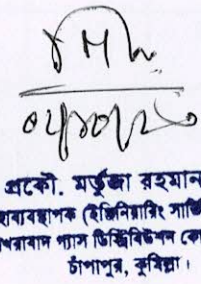 প্রকৌ. মর্তুজা রহমান
হাব্যবস্থাপক (ইঞ্জিনিয়ারিং সার্ভি
খরাবাদ গ্যাস ডিস্ট্রিবিউশন কো
চাঁপাপুর, কুমিল্লা।